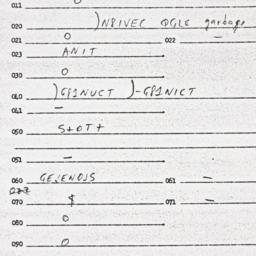 011
020 )NPIVEC QGLE garbage
021 0 022 –
023 ANIT
030 0
040 )GPINUCT )-GPINICT
041 –
050 S+OT+
051 –
060 GEVENOJS 061 –
070 $ 071 –
080 0
090 0